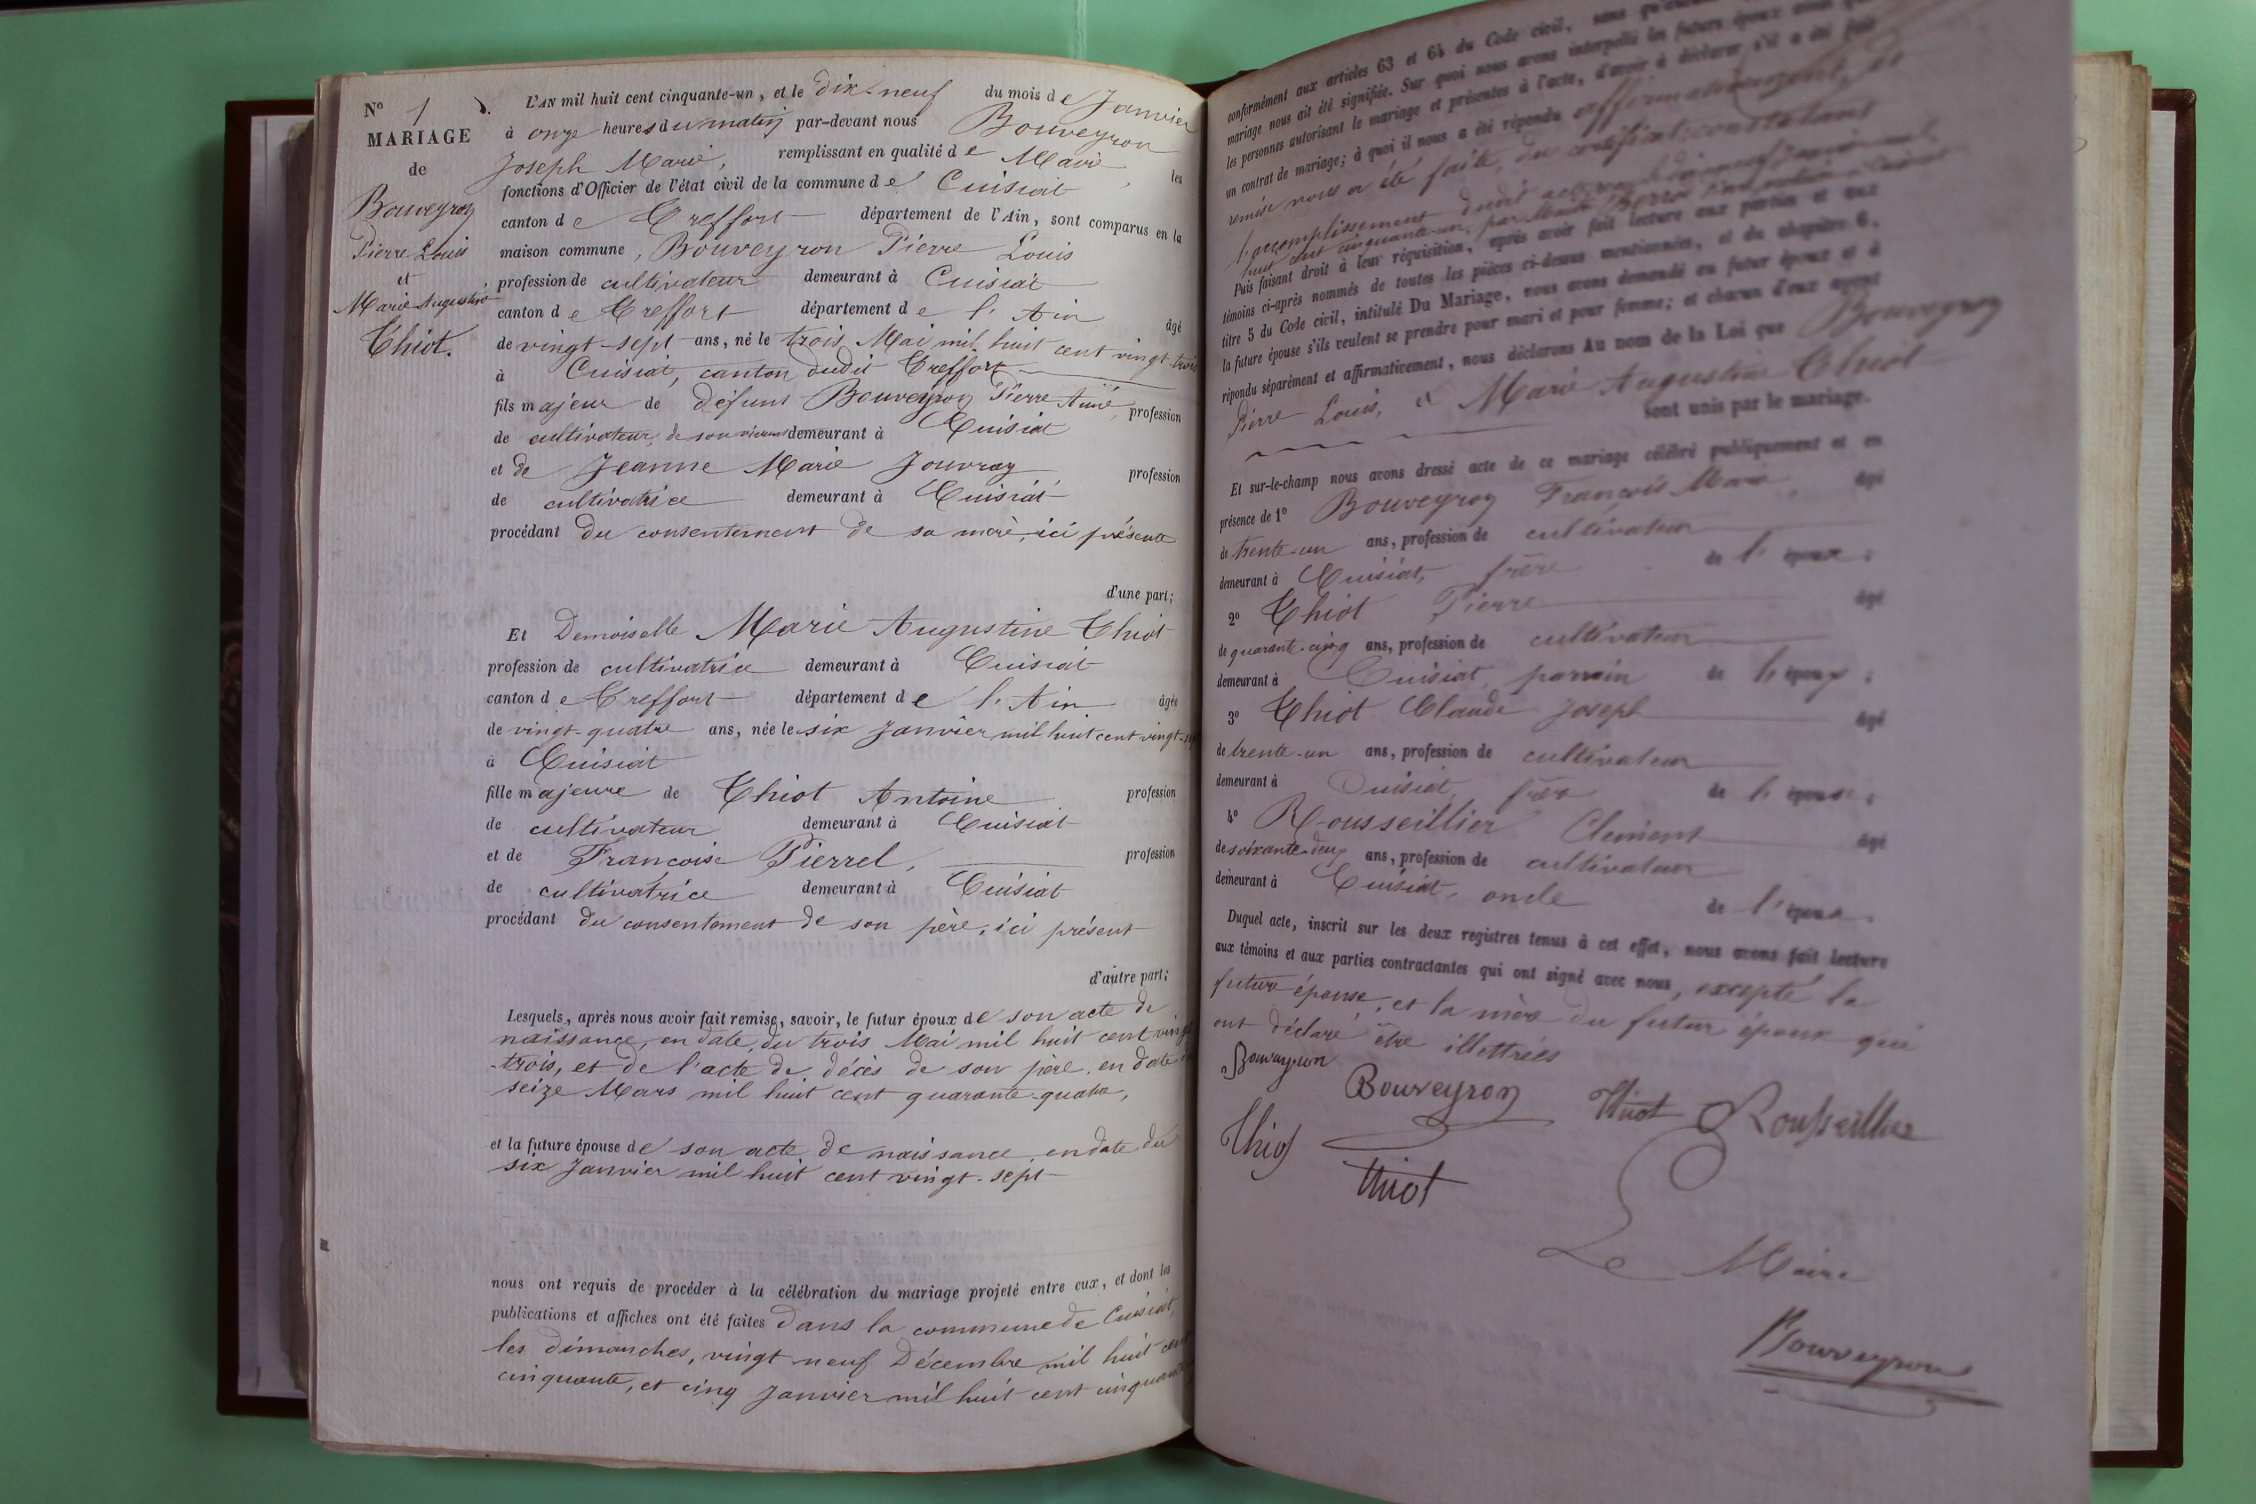 N° 1
MARIAGE
de
Bouveyron
Pierre Louis
et
Marie Augustine
Thiot.
L'AN mil huit cent cinquante-un, et le dix-neuf du mois de Janvier
à onze heures du matin par-devant nous Bouveyron
Joseph Marie, remplissant en qualité de Maire, les
fonctions d'Officier de l'état civil de la commune de Cuisiat
canton de Treffort département de l'Ain, sont comparus en la
maison commune, Bouveyron Pierre Louis
profession de cultivateur demeurant à Cuisiat
canton de Treffort département de l'Ain âgé
de vingt-sept ans, né le trois Mai mil huit cent vingt-trois
à Cuisiat, canton dudit Treffort
fils majeur de défunt Bouveyron Pierre Aimé, profession
de cultivateur, de son vivant demeurant à Cuisiat
et de Jeanne Marie Jouvray profession
de cultivatrice demeurant à Cuisiat
procédant du consentement de sa mère, ici présente
d'une part;
Et Demoiselle Marie Augustine Thiot
profession de cultivatrice demeurant à Cuisiat
canton de Treffort département de l'Ain âgée
de vingt-quatre ans, née le six Janvier mil huit cent vingt-
à Cuisiat
fille majeure de Thiot Antoine profession
de cultivateur demeurant à Cuisiat
et de Françoise Pierrel, profession
de cultivatrice demeurant à Cuisiat
procédant du consentement de son père, ici présent
d'autre part;
Lesquels, après nous avoir fait remise, savoir, le futur époux de son acte de
naissance, en date du trois Mai mil huit cent vingt
trois, et de l'acte de décès de son père, en date
seize Mars mil huit cent quarante-quatre,
et la future épouse de son acte de naissance, en date du
six Janvier mil huit cent vingt-sept
nous ont requis de procéder à la célébration du mariage projeté entre eux, et dont les
publications et affiches ont été faites dans la commune de Cuisiat,
les dimanches, vingt-neuf Décembre mil huit cent
cinquante, et cinq Janvier mil huit cent cinquante
conformément aux articles 63 et 64 du Code civil, sans
mariage nous ait été signifiée. Sur quoi nous avons interpellé les futurs époux
les personnes autorisant le mariage et présentes à l'acte, d'avoir à déclarer s'il a été fait
un contrat de mariage; à quoi il nous a été répondu affirmativement, et
remise nous a été faite, du certificat constatant
l'accomplissement dudit
huit cent cinquante-un, par
Puis faisant droit à leur réquisition, après avoir fait lecture aux parties et aux
témoins ci-après nommés de toutes les pièces ci-dessus mentionnées, et du chapitre 6,
titre 5 du Code civil, intitulé Du Mariage, nous avons demandé au futur époux et à
la future épouse s'ils veulent se prendre pour mari et pour femme; et chacun d'eux ayant
répondu séparément et affirmativement, nous déclarons Au nom de la Loi que Bouveyron
Pierre Louis, et Marie Augustine Thiot
sont unis par le mariage.
Et sur-le-champ nous avons dressé acte de ce mariage célébré publiquement et en
présence de 1° Bouveyron François Marie, âgé
de trente-un ans, profession de cultivateur
demeurant à Cuisiat, frère de l'époux;
2° Thiot Pierre âgé
de quarante-cinq ans, profession de cultivateur
demeurant à Cuisiat, parrain de l'époux;
3° Thiot Claude Joseph âgé
de trente-un ans, profession de cultivateur
demeurant à Cuisiat, frère de l'épouse;
4° Rousseillier Clément âgé
de soixante-deux ans, profession de cultivateur
demeurant à Cuisiat, oncle de
Duquel acte, inscrit sur les deux registres tenus à cet effet, nous avons fait lecture
aux témoins et aux parties contractantes qui ont signé avec nous, excepté la
future épouse, et la mère du futur époux qui
ont déclaré être illettrées
Bouveyron
Bouveyron Thiot Rousseillier
Thiot
Thiot
Le Maire
Bouveyron